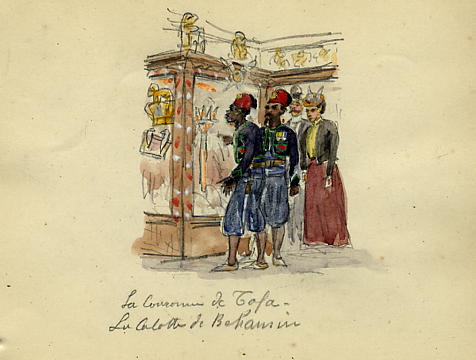 La Couronne de Tofa -
La Calotte de Behanzin